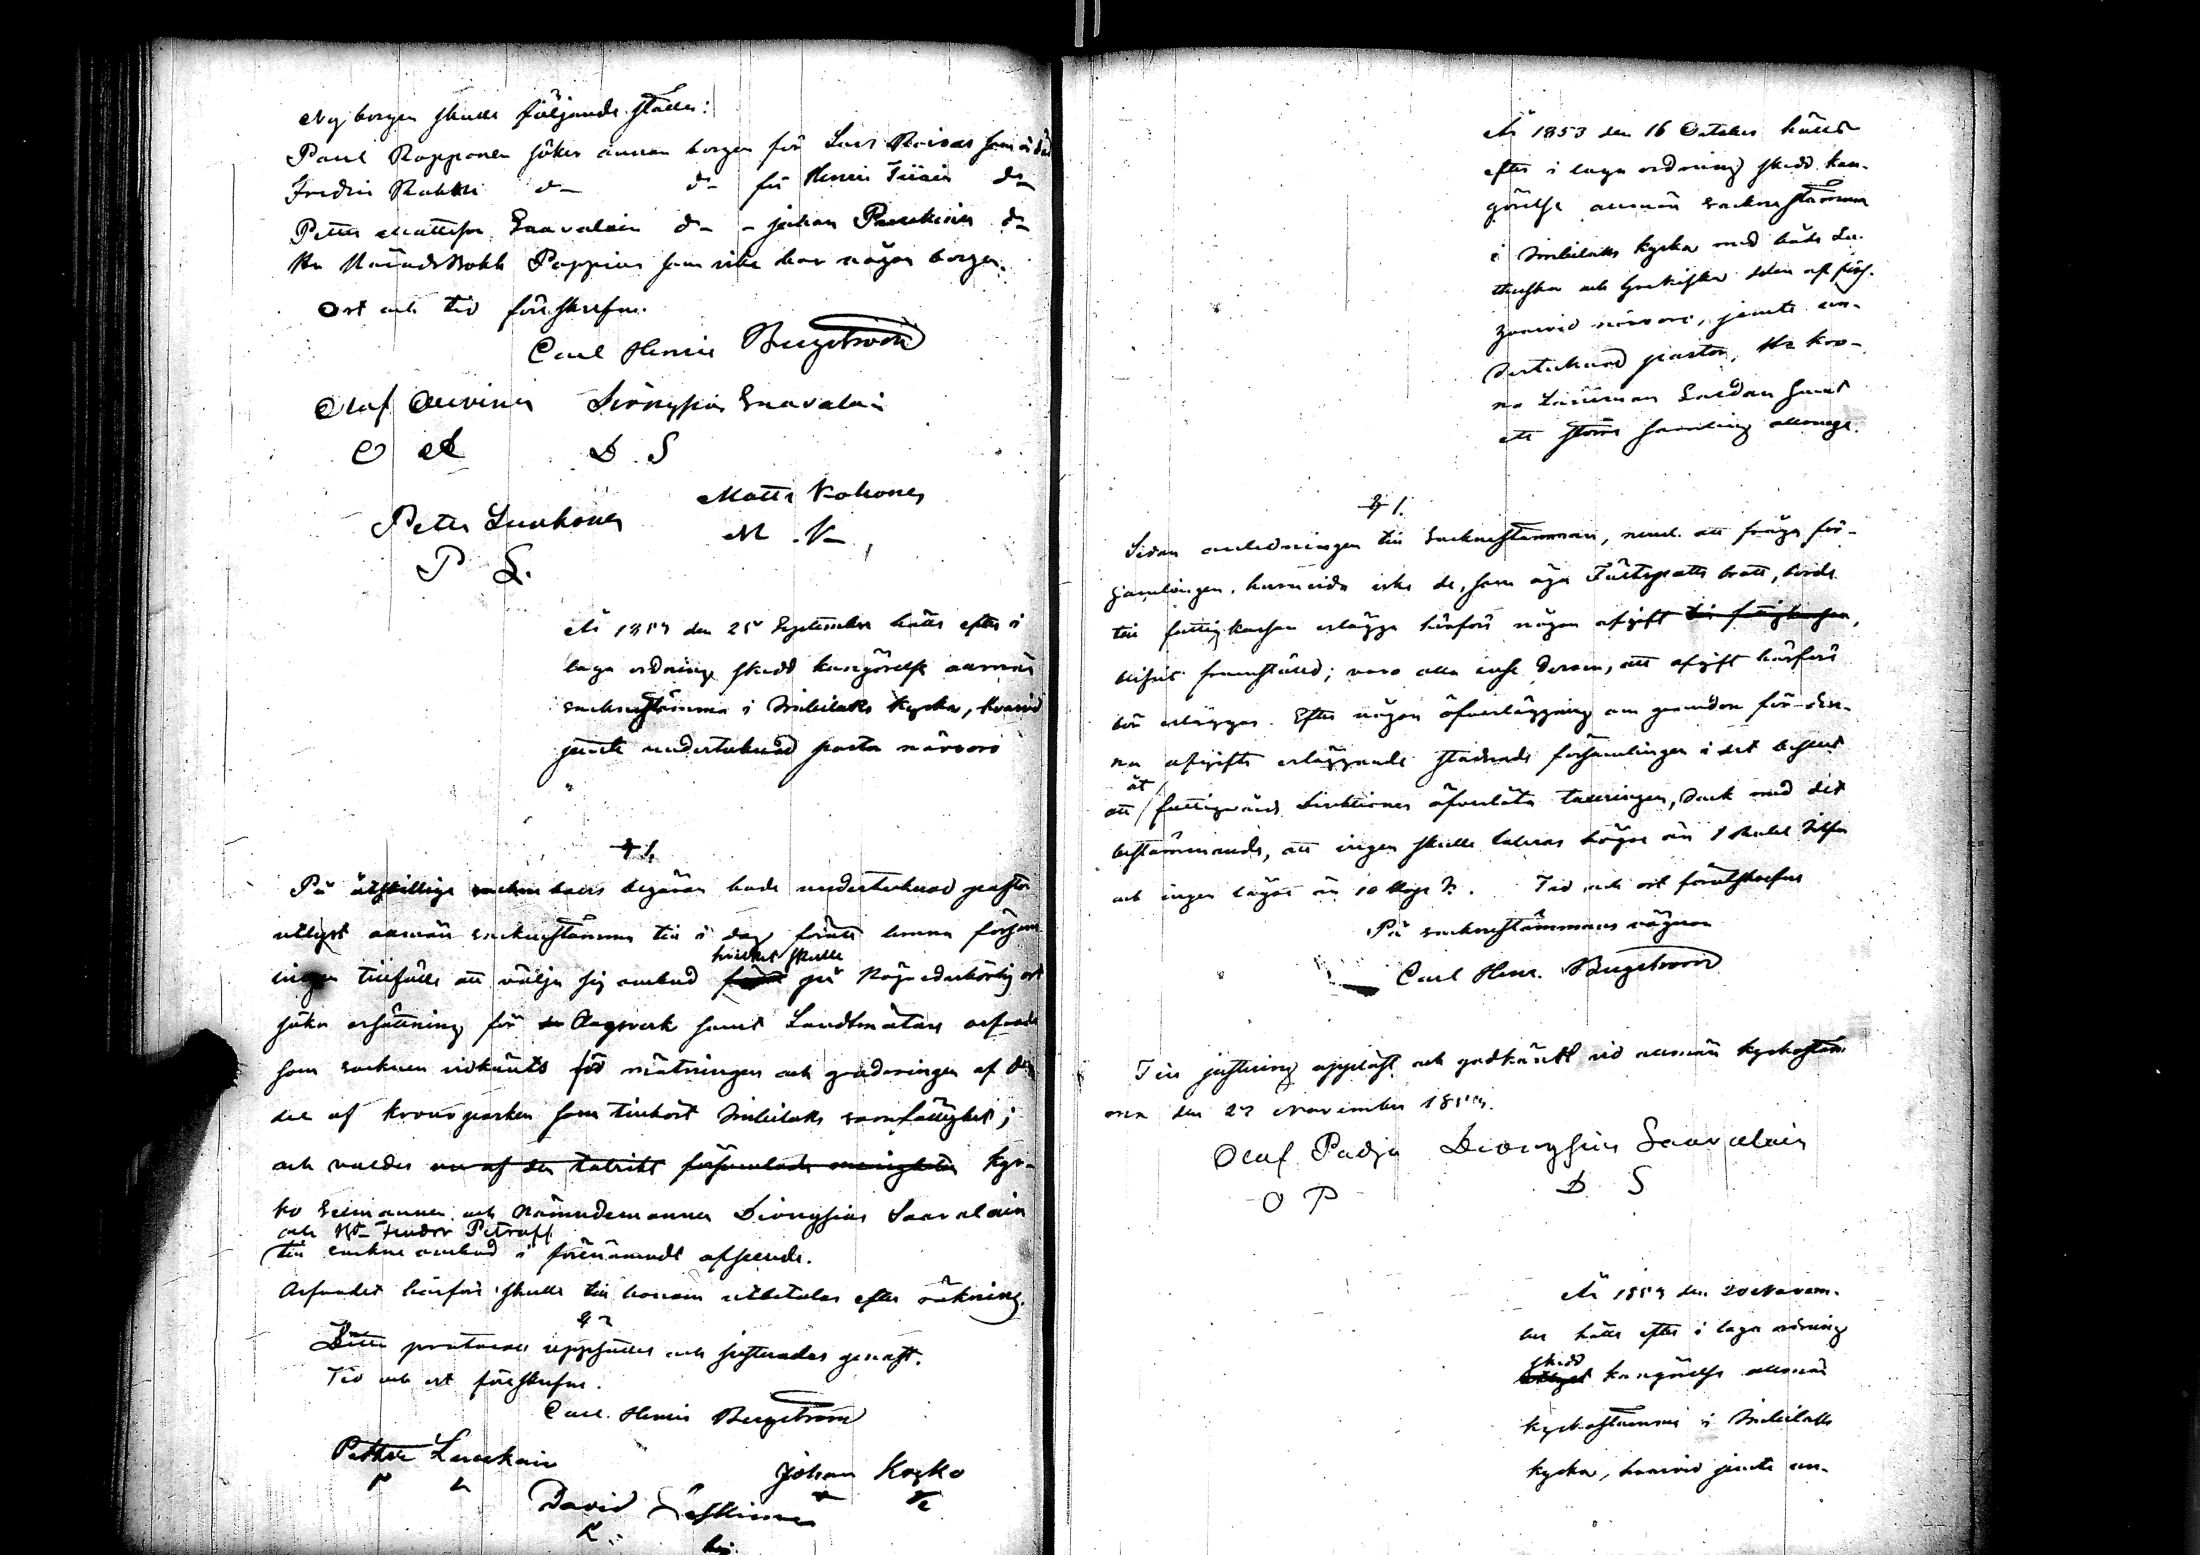 Ny borgen skulle följande ställa:
Paul Ropponen söker annan borgen för Lars Roivas som är död
Fredric Rahkki d:o d:o för Henric Tiiain d:o
Petter Mattsson Saavalain d:o - Johan Pesukain d:o
Hr Häradsbokh Poppius som icke har någon borgen.
Ort och tid föreskrefne.
Carl Henric Bergstroem
Olaf Auvinen Dionysius Saavalain
O A D. S
Matts Kohonen
Peter Luukonen
M. K
P L.
År 1853 den 25 September hölls efter i
laga ordning skedd kungörelse allmän
sockenstämma i Imbilaks kyrka, hvarvid
jemte undertecknad pastor närvoro
§ 1.
På åtskillige sockneboers begäran hade undertecknad pastor
utlyst allmän sockenstämma till i dag för att lemna försam
lingen tillfälle att välja sig ombud hvilket skulle på höga vederbörlig ort
söka ersättning för dagsverk samt Landtmätare arfvode
som socknen vidkänts för mätningen och graderingen af den
del af kronoparken som tillhört Imbilaks samfällighet;
och valdes en af den talrikt församlade menigheten kyr-
ko Sexmannen och Nämndemannen Dionysius Saavalain
och Hr Feodor Petroff
till sockne ombud i förenämndt afseende.
Arfvodet härför skulle till honom utbetalas efter räkning.
§ 2
Detta protocoll uppsattes och justerades genast.
Tid och ort föreskrefne.
Carl Henric Bergstroem
Petter Leuskain
P L
Johan Kozko
David Laskinen
År 1853 den 16 October hölls
efter i laga ordning skedd kun-
görelse allmän sockenstämma
i Imbilaks kyrka med både Lu-
therska och Grekiska delen af förs.
hvarvid närvoro, jemte un-
dertecknad pastor, Hr Kro-
no Länsman Lardan samt
ett större samling allmoge.
§ 1.
Sedan anledningen till Sockenstämman, neml. att fråga för-
samlingen, huruvida icke de, som äga Fältspatts brott, borde
till fattigkassan erlägga härför någon afgift till fattigkassan,
blifvit framställd; voro alla ense derom, att afgift härför
bör erläggas. Efter någon öfverläggning om grunden för den-
na afgifts erläggande stadnade församlingen i det beslut
åt
att fattigvårds Directionen öfverlåta taxeringen, dock med det
bestämmande, att ingen skulle taxeras högre än 1 Rubel Silfver
och ingen lägre än 10 Kop. S. Tid och ort förutskrefne
På sockenstämmans vägnar
Carl Henr. Bergstroem
Till justering uppläst och godkändt vid allmän kyrkostäm-
ma den 27 November 1853.
Olaf Padja Dionysius Saavalain
O P D S
År 1853 den 20 Novem-
ber hölls efter i laga ordning
skedd
kungörelse allmän
kyrkostämma i Imbilaks
kyrka, hvarvid jemte un-